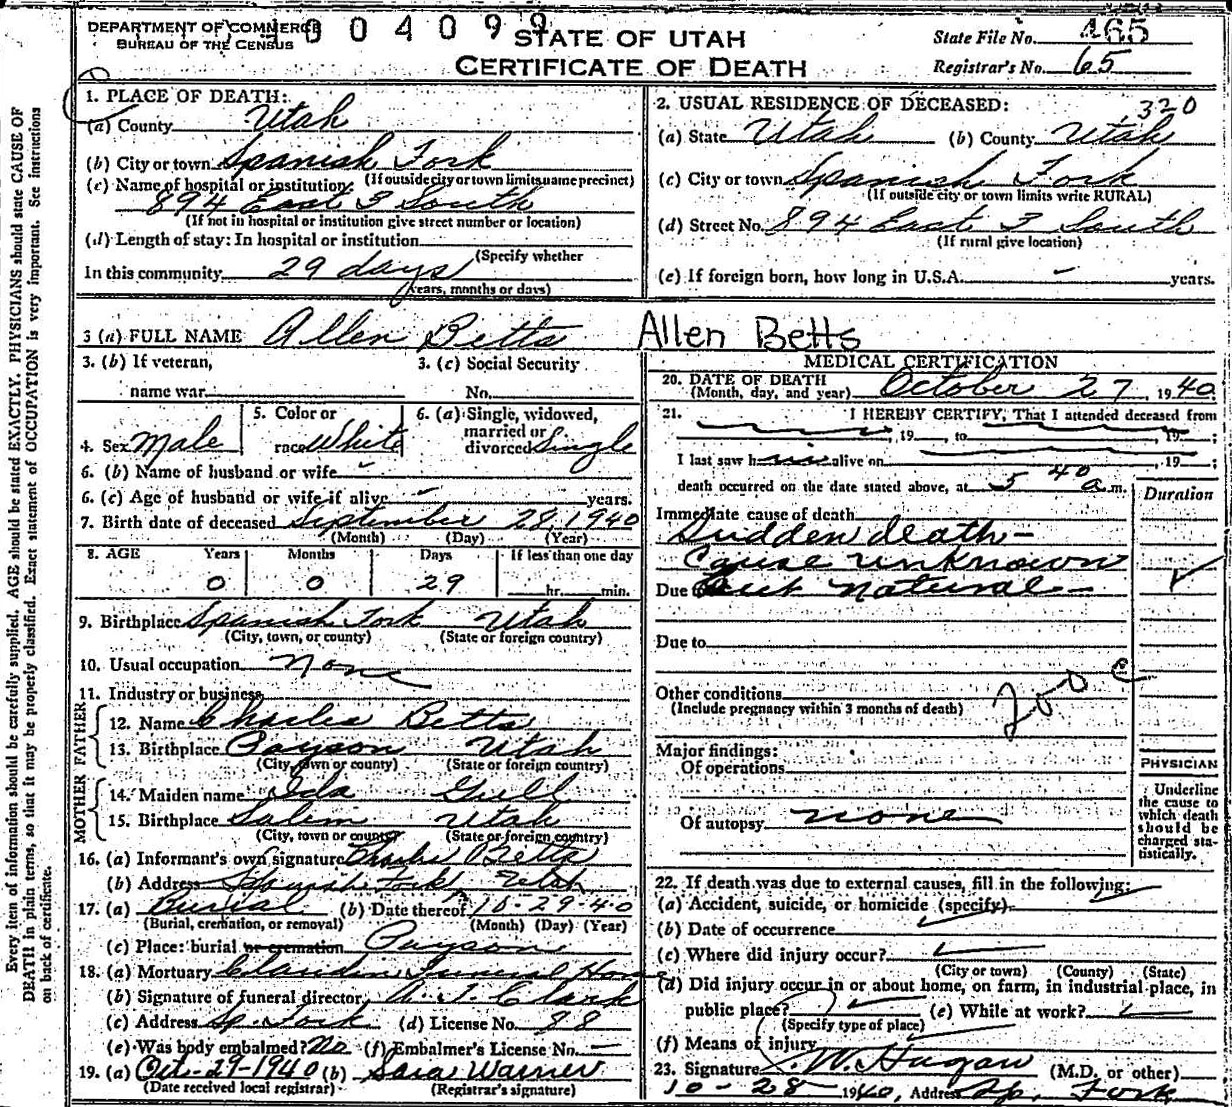 DEPARTMENT OF COMMERCE
BUREAU OF THE CENSUS
004099
STATE OF UTAH
CERTIFICATE OF DEATH
State File No. 465
Registrar's No. 65
Every item of information should be carefully supplied. AGE should be stated EXACTLY. PHYSICIANS should state CAUSE OF
DEATH in plain terms, so that it may be properly classified. Exact statement of OCCUPATION is very important. See instructions
on back of certificate.
1. PLACE OF DEATH:
(a) County Utah
(b) City or town Spanish Fork
(If outside city or town limits name precinct)
(c) Name of hospital or institution:
894 East 3 South
(If not in hospital or institution give street number or location)
(d) Length of stay: In hospital or institution
(Specify whether
In this community 29 days
years, months or days)
2. USUAL RESIDENCE OF DECEASED: 320
(a) State Utah (b) County Utah
(c) City or town Spanish Fork
(If outside city or town limits write RURAL)
(d) Street No. 894 East 3 South
(If rural give location)
(e) If foreign born, how long in U.S.A. - years.
3 (a) FULL NAME Allen Betts Allen Betts
3. (b) If veteran,
name war
3. (c) Social Security
No.
4. Sex Male
5. Color or
race White
6. (a) Single, widowed,
married or
divorced Single
6. (b) Name of husband or wife -
6. (c) Age of husband or wife if alive - years.
7. Birth date of deceased September 28, 1940
(Month) (Day) (Year)
8. AGE Years Months Days If less than one day
0 0 29 hr. min.
9. Birthplace Spanish Fork Utah
(City, town, or county) (State or foreign country)
10. Usual occupation None
11. Industry or business
FATHER
12. Name Charles Betts
13. Birthplace Payson Utah
(City, town or county) (State or foreign country)
MOTHER
14. Maiden name Ida Gull
15. Birthplace Salem Utah
(City, town or county) (State or foreign country)
16. (a) Informant's own signature Charles Betts
(b) Address Spanish Fork Utah
17. (a) Burial (b) Date thereof 10-29-40
(Burial, cremation, or removal) (Month) (Day) (Year)
(c) Place: burial or cremation Payson
18. (a) Mortuary Claudin Funeral Home
(b) Signature of funeral director A. J. Clark
(c) Address Sp. Fork (d) License No. 98
(e) Was body embalmed? No (f) Embalmer's License No. -
19. (a) Oct-29-1940 (b) Sara Warner
(Date received local registrar) (Registrar's signature)
MEDICAL CERTIFICATION
20. DATE OF DEATH
(Month, day, and year) October 27 1940
21. I HEREBY CERTIFY, That I attended deceased from
, 19 , to , 19 ;
I last saw h alive on , 19 ;
death occurred on the date stated above, at 5 40 a m.
Duration
Immediate cause of death
Sudden death-
Cause unknown
Due to but natural-
Due to
Other conditions
(Include pregnancy within 3 months of death)
200 c
Major findings:
Of operations
Of autopsy none
PHYSICIAN
Underline
the cause to
which death
should be
charged sta-
tistically.
22. If death was due to external causes, fill in the following:
(a) Accident, suicide, or homicide (specify)
(b) Date of occurrence
(c) Where did injury occur?
(City or town) (County) (State)
(d) Did injury occur in or about home, on farm, in industrial place, in
public place? (e) While at work?
(Specify type of place)
(f) Means of injury
23. Signature W. Hagan (M.D. or other)
10-28 1940, Address Sp. Fork